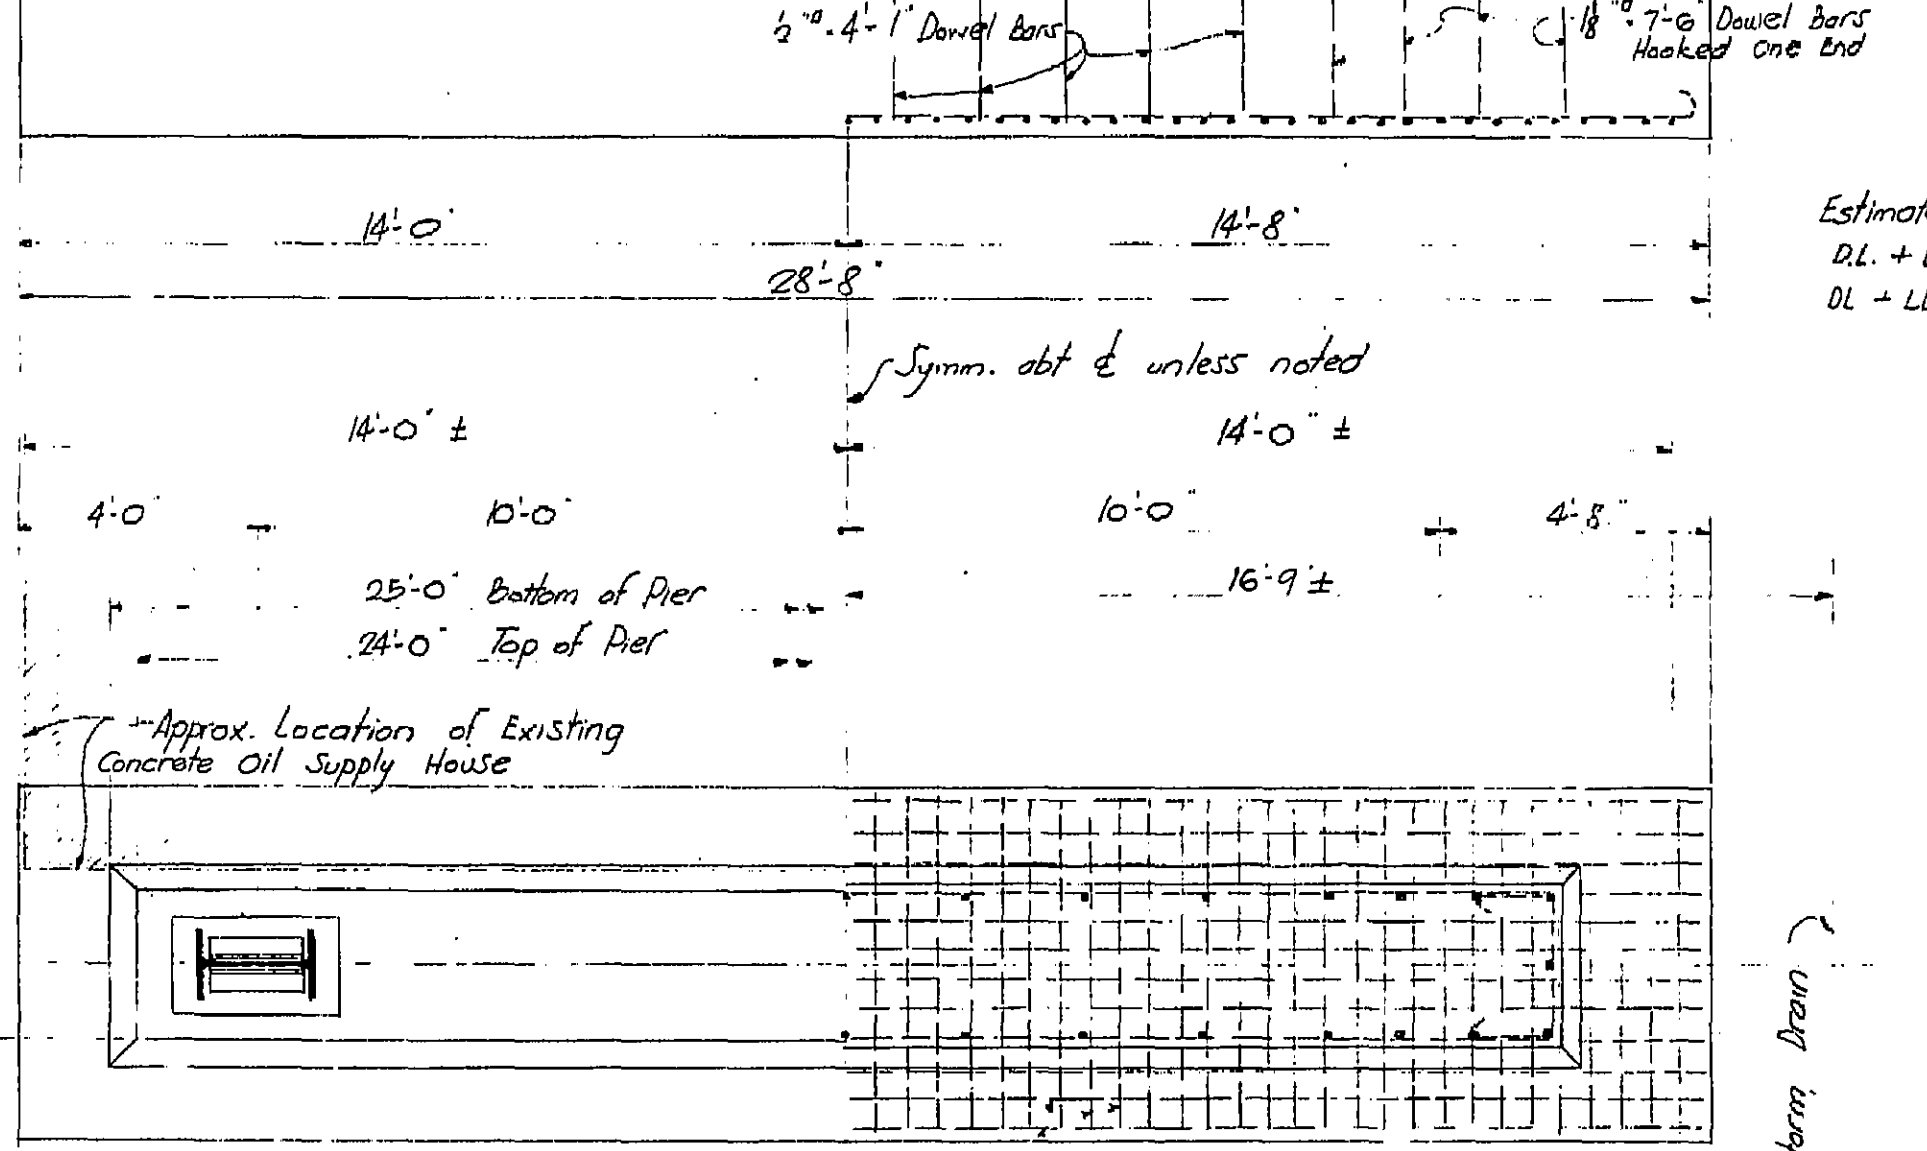 ½"□ · 4'-1" Dowel Bars
1⅛"□ · 7'-6" Dowel Bars
Hooked One End
14'-0"
14'-8"
28'-8"
D.L. +
DL + LL
Symm. abt ℄ unless noted
14'-0" ±
14'-0" ±
4'-0"
10'-0"
10'-0"
4'-8"
25'-0" Bottom of Pier
16'-9" ±
24'-0" Top of Pier
Approx. Location of Existing
Concrete Oil Supply House
Drain